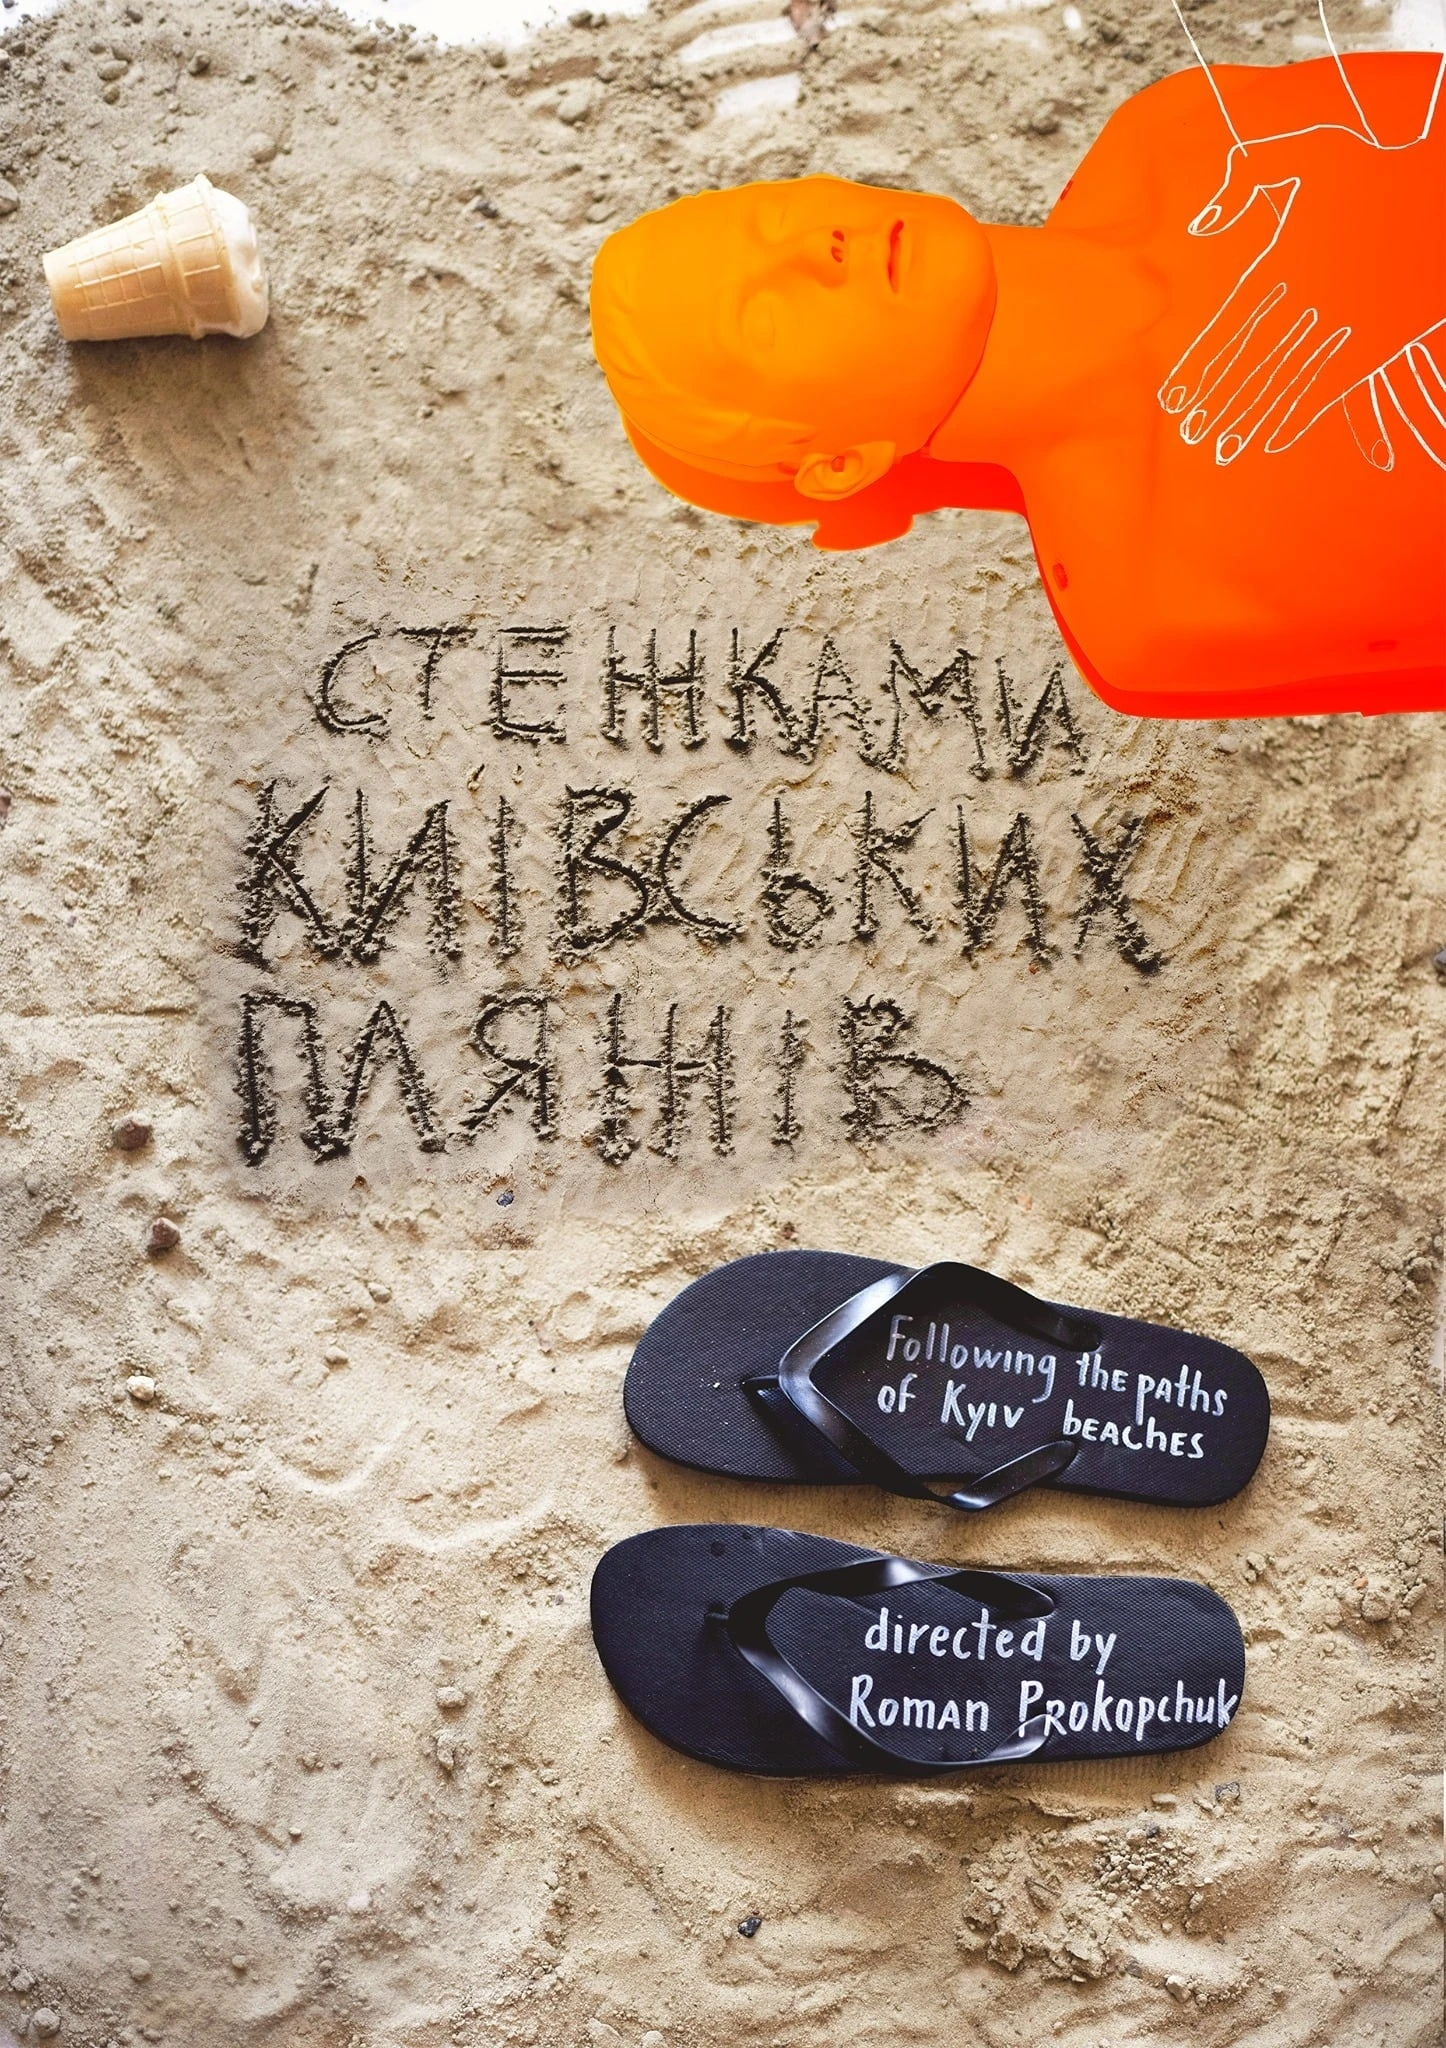 СТЕЖКАМИ
КИЇВСЬКИХ
ПЛЯЖІВ
Following the paths
of Kyiv beaches
directed by
Roman Prokopchuk